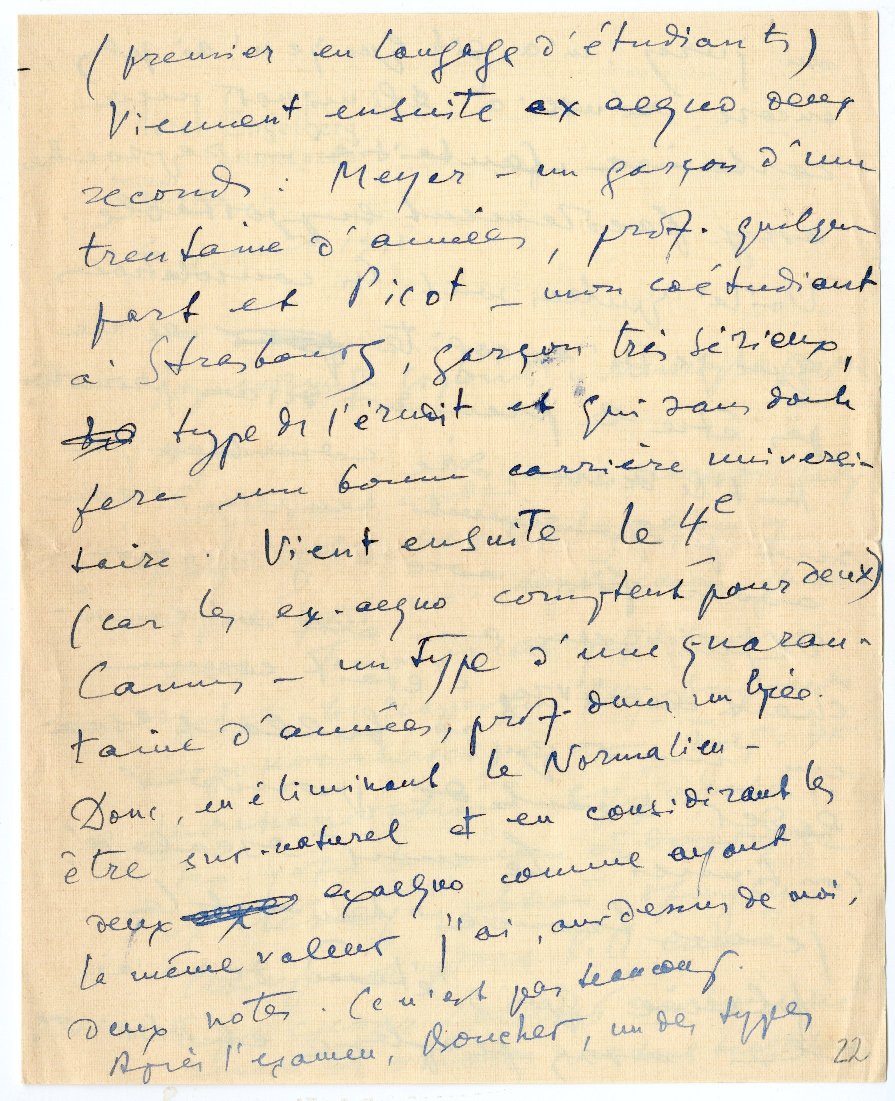 (premier en langage d'étudiants)
Viennent ensuite ex aequo deux
seconds : Meyer – un garçon d'une
trentaine d'années, prof. quelque
part et Picot – mon coétudiant
à Strasbourg, garçon très sérieux,
type de l'érudit et qui sans doute
fera une bonne carrière universi-
taire. Vient ensuite le 4e
(car les ex-aequo comptent pour deux)
Camus – un type d'une quaran-
taine d'années, prof. dans un lycée.
Donc, en éliminant le Normalien –
être sur-naturel et en considérant les
deux exaequo comme ayant
la même valeur j'ai, au dessus de moi,
deux notes. Ce n'est pas beaucoup.
Après l'examen, Boucher, un des types
22